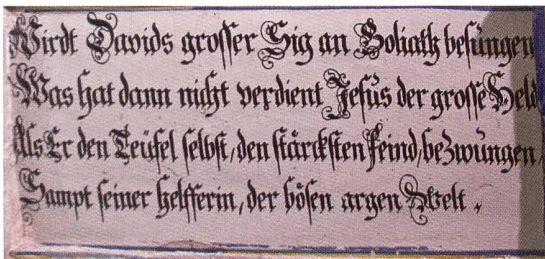 Wirdt Davids grosser Sig an Goliath besungen
Was hat dann nicht verdient Jesus der grosse Held
Als Er den Teüfel selbst, den stärcksten Feind, bezwungen,
Sampt seiner Helfferin, der bösen argen Welt.